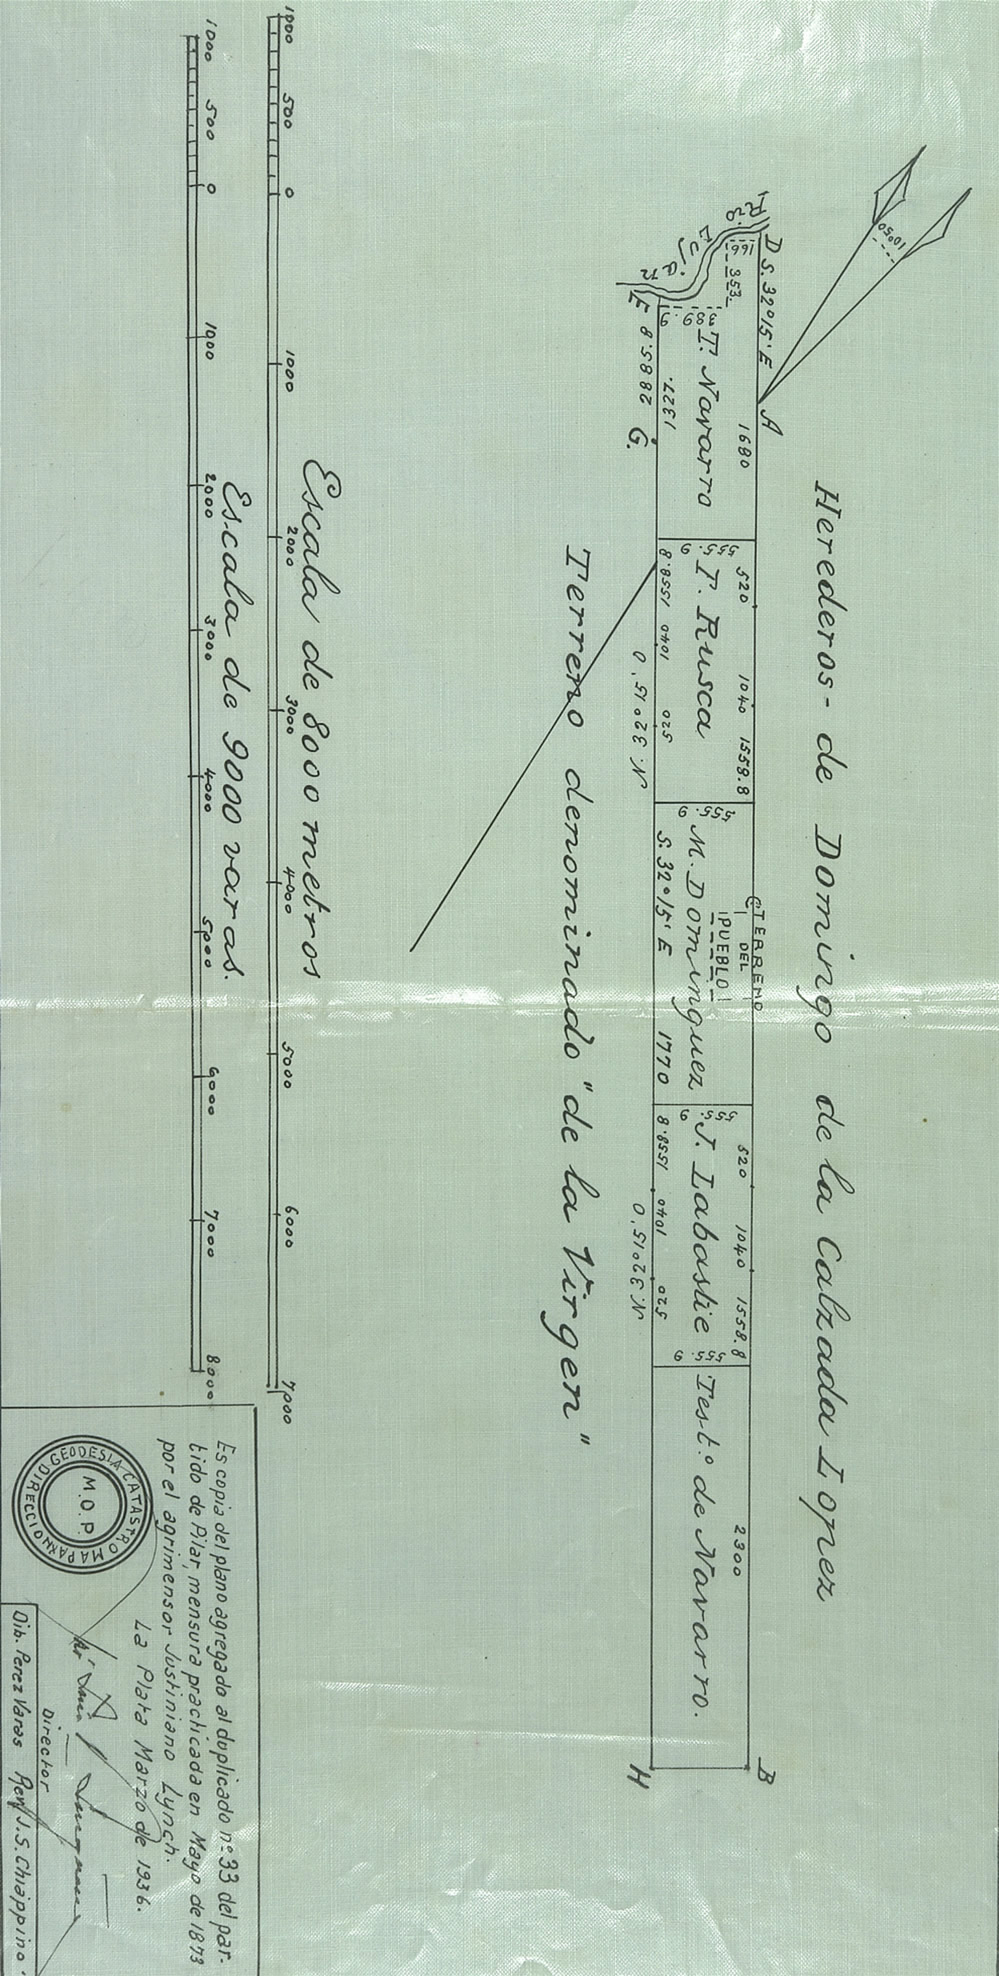 10°50'
Herederos de Domingo de la Calzada Lopez
Río Lujan
D S. 32°15' E A 1680 520 1040 1558.8 520 1040 1558.8 2300 B
166
353
389.9
T. Navarro
555.9
T. Rusca
555.9
M. Dominguez
C TERRENO
DEL
PUEBLO
555.9
J. Labastie
555.9
Test.º de Navarro.
1327.
1558.8 1040 520
S. 32°15' E 1770
1558.8 1040 520
E 2885.8 G.
N. 32°15' O
N. 32°15' O
H
Terreno denominado "de la Virgen"
Escala de 8000 metros
1000 500 0 1000 2000 3000 4000 5000 6000 7000
Escala de 9000 varas.
1000 500 0 1000 2000 3000 4000 5000 6000 7000 8000
Es copia del plano agregado al duplicado nº 33 del par-
tido de Pilar, mensura practicada en Mayo de 1873
por el agrimensor Justiniano Lynch.
La Plata Marzo de 1936.
Director
Dib. Perez Varas Rev. J. S. Chiappino
DIRECCION GEODESIA CATASTRO MAPA
M.O.P.